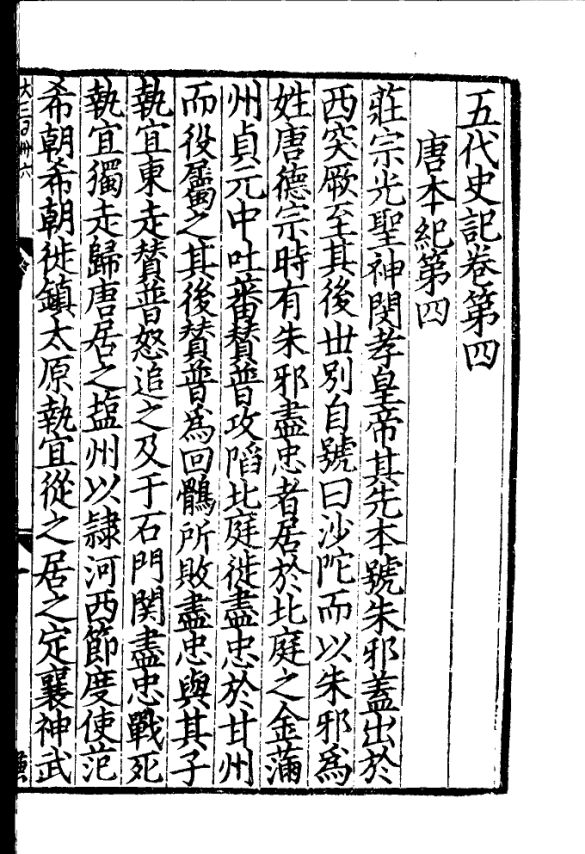 五代史記卷第四
唐本紀第四
莊宗光聖神閔孝皇帝其先本號朱邪蓋出於
西突厥至其後丗別自號曰沙陀而以朱邪爲
姓唐德宗時有朱邪盡忠者居於北庭之金滿
州貞元中吐蕃贊普攻䧟北庭徙盡忠於甘州
而役屬之其後贊普爲回鶻所敗盡忠與其子
執宜東走贊普怒追之及于石門関盡忠戰死
執宜獨走歸唐居之塩州以隷河西節度使范
希朝希朝徙鎮太原執宜從之居之定襄神武